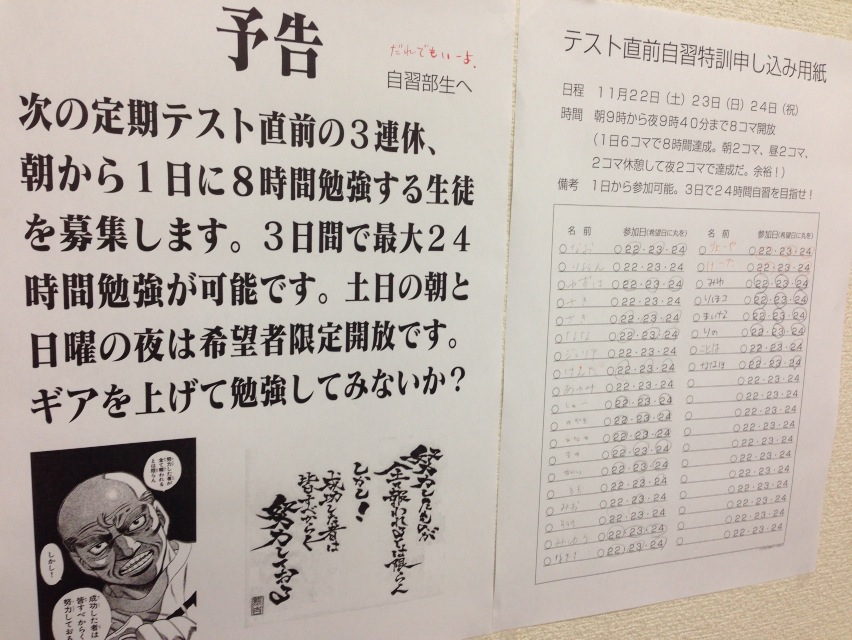 予告
だれでもいーよ。
自習部生へ
次の定期テスト直前の3連休、
朝から1日に8時間勉強する生徒
を募集します。3日間で最大24
時間勉強が可能です。土日の朝と
日曜の夜は希望者限定開放です。
ギアを上げて勉強してみないか?
努力した者が
全て報われる
とは限らん
しかし!
成功した者は
皆すべからく
努力しておる
努力したものが
全て報われるとは限らん
しかし!
成功した者は
皆すべからく
努力しておる
テスト直前自習特訓申し込み用紙
日程 11月22日(土)23日(日)24日(祝)
時間 朝9時から夜9時40分まで8コマ開放
(1日6コマで8時間達成。朝2コマ、昼2コマ、
2コマ休憩して夜2コマで達成だ。余裕!)
備考 1日から参加可能。3日で24時間自習を目指せ!
名前 参加日(希望日に丸を) 名前 参加日(希望日に丸を)
○なお ○22・23・24 ○りょーや ○22・23・24
○ ○22・23・24 ○ ○22・23・24
○ゆずは ○22・23・24 ○みゆ ○22・23・24
○ ○22・23・24 ○りほこ ○22・23・24
○ ○22・23・24 ○まいける ○22・23・24
○ ○22・23・24 ○りの ○22・23・24
○ジュリア ○22・23・24 ○ことは ○22・23・24
○けんた ○22・23・24 ○ ○22・23・24
○あゆみ ○22・23・24 ○ ○22・23・24
○しゅー ○22・23・24 ○ ○22・23・24
○ ○22・23・24 ○ ○22・23・24
○ ○22・23・24 ○ ○22・23・24
○ ○22・23・24 ○ ○22・23・24
○ ○22・23・24 ○ ○22・23・24
○ ○22・23・24 ○ ○22・23・24
○みお ○22・23・24 ○ ○22・23・24
○ ○22・23・24 ○ ○22・23・24
○ ○22・23・24 ○ ○22・23・24
○ ○22・23・24 ○ ○22・23・24